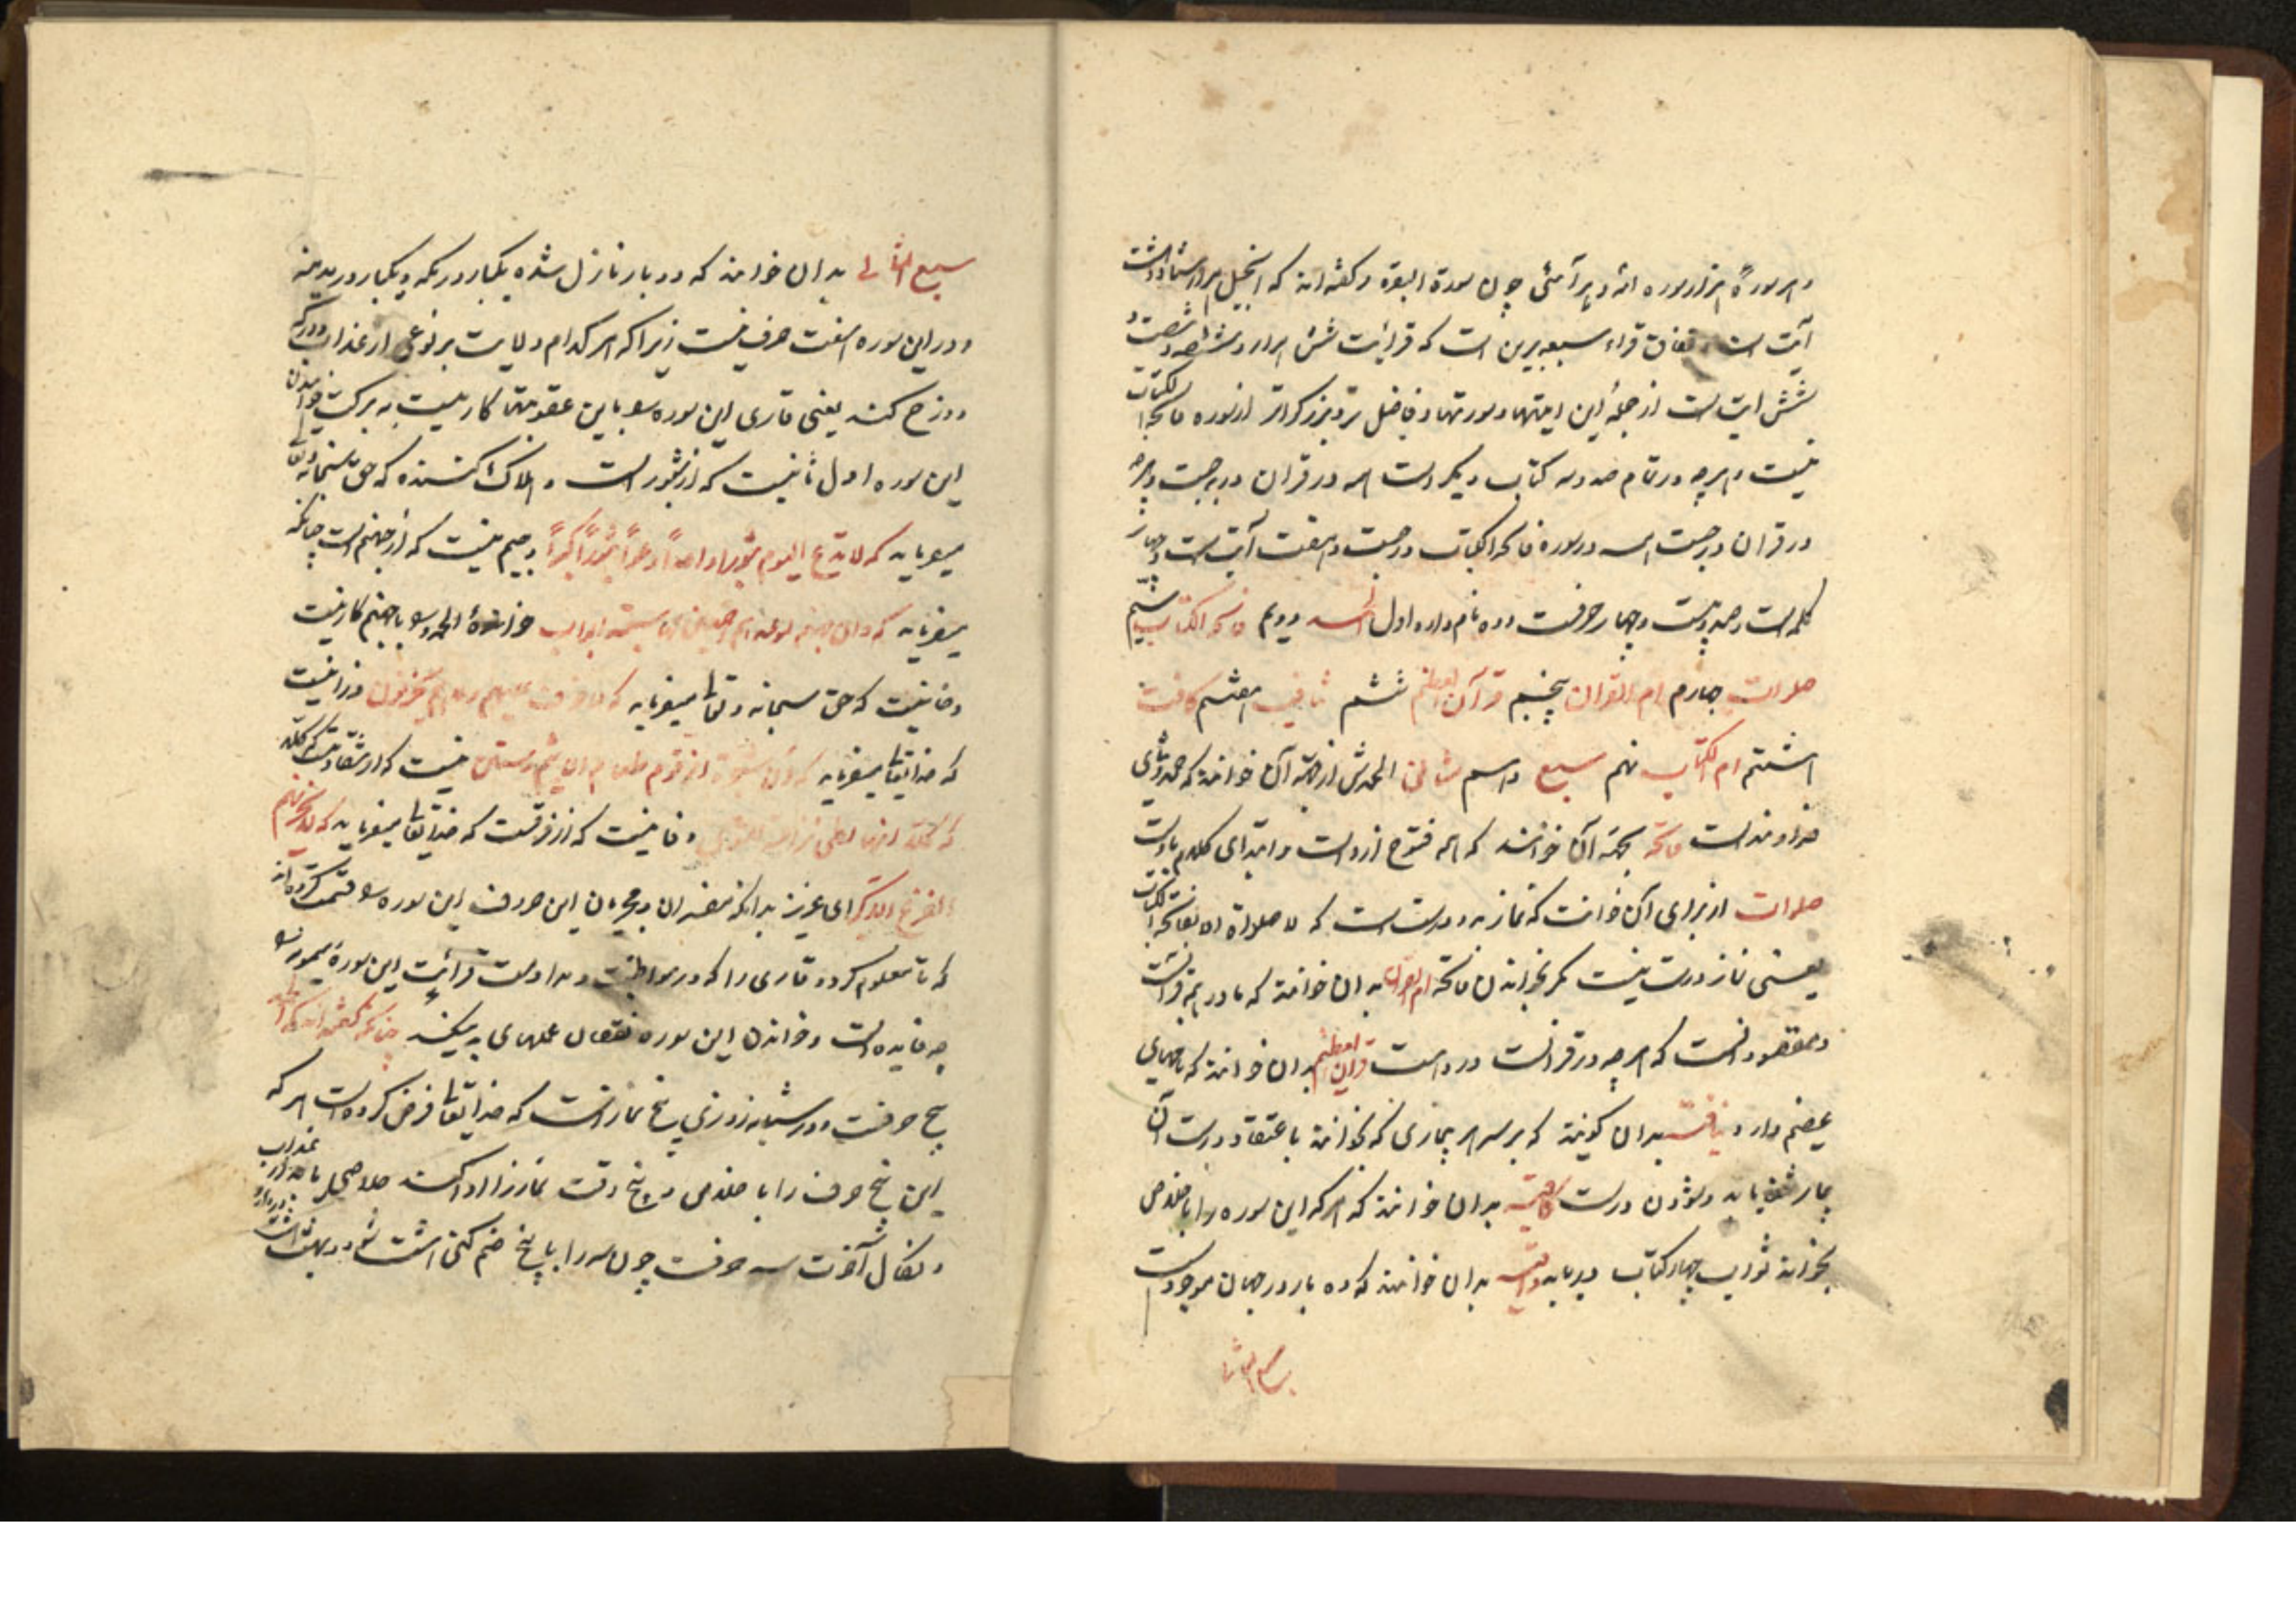 و هر سورهٔ هزار سوره انه و هر آیتی چون سورة البقره و گفته‌اند که انجیل هزار
آیت است اتفاق قراء سبعه برین است که قرائت شش هزار و ششصد و شصت و
شش آیت است از جملهٔ این ایتها و سورتها فاضل تر و بزرگوارتر از سوره فاتحة الکتاب
نیست و هر چه در تمام صد و سه کتاب دیگر است همه در قران درجست و هر چه
در قران درجست همه در سوره فاتحة الکتاب درجست و هفت آیت است و چهار
کلمه است و صد و بیست و چهار حرفست و ده نام دارد اول الحمد دویم فاتحة الکتاب سیّم
صلوات چهارم ام القران پنجم قرآن العظیم ششم شافیه هفتم کافیه
هشتم ام الکتاب نهم سبع دهم مثانی الحمدش از جهة آن خوانند که حمد و ثنای
خداوند است فاتحه بجهة آن خوانند که همه فتوح ازوست و ابتدای کلام باوست
صلوات از برای آن خوانند که نماز بدو درست است که لا صلواة الا بفاتحة الکتاب
یعنی نماز درست نیست مگر بخواندن فاتحه ام القران بدان خوانند که مادر همه قرآنست
و مقصود انست که هر چه در قرانست درو هست قران العظیم بدان خوانند که
عظیم دارد شافیه بدان گویند که بر سر هر بیماری که بخوانند با عتقاد درست آن
بیمار شفا یابد و بودن درست کافیه بدان خوانند که هر که این سوره را با خلاص
بخواند ثواب چهار کتاب دریابد بدان خوانند که ده بار در جهان موجودست
سبع المثانی
سبع المثانی بدان خوانند که دو بار نازل شده یکبار در مکه و یکبار در مدینه
و در این سوره هفت حرف نیست زیرا که هر کدام دلالت بر نوعی از عذاب و درکه
دوزخ کند یعنی قاری این سوره را باین عقوبتها کار نیست به برکت خواندن
این سوره اول ثا نیست که از ثبور است و هلاک کننده که حق سبحانه و تعالی
میفرماید که لا تدعوا الیوم ثبوراً واحداً وادعوا ثبوراً کثیراً و جیم نیست که از جهنم است چنانکه
میفرماید که و ان جهنم لموعدهم اجمعین لها سبعة ابواب خوانندهٔ الحمد را با جهنم کار نیست
و خا نیست که حق سبحانه و تعالی میفرماید که لا خوف علیهم و لا هم یحزنون و زا نیست
که خدایتعالی میفرماید که ان شجرة الزقوم طعام الاثیم و شین نیست که از شقاوتست
که کلا انها لظی نزاعة للشوی و فا نیست که از فرقست که خدایتعالی میفرماید که لا یحزنهم
الفزع الاکبر ای عزیز بدانکه مفسران و مجربان این حروف این سوره را قسمت کرده‌اند
که تا معلوم گردد قاری را که در مواظبت و مداومت قرائت این سورهٔ میمون
چه فایده است و خواندن این سوره نقصان عملهای بد میکند چنانکه گفته‌اند که
پنج حرفست و در شبانه روزی پنج نمازاست که خدایتعالی فرض کرده است هر که
این پنج حرف را با خلاص در پنج وقت نماز ادا کند خلاصی یابد از عذاب
و نکال آخرت سه حرفست چون سه را با پنج ضم کنی هشت شود و بهشت هشت